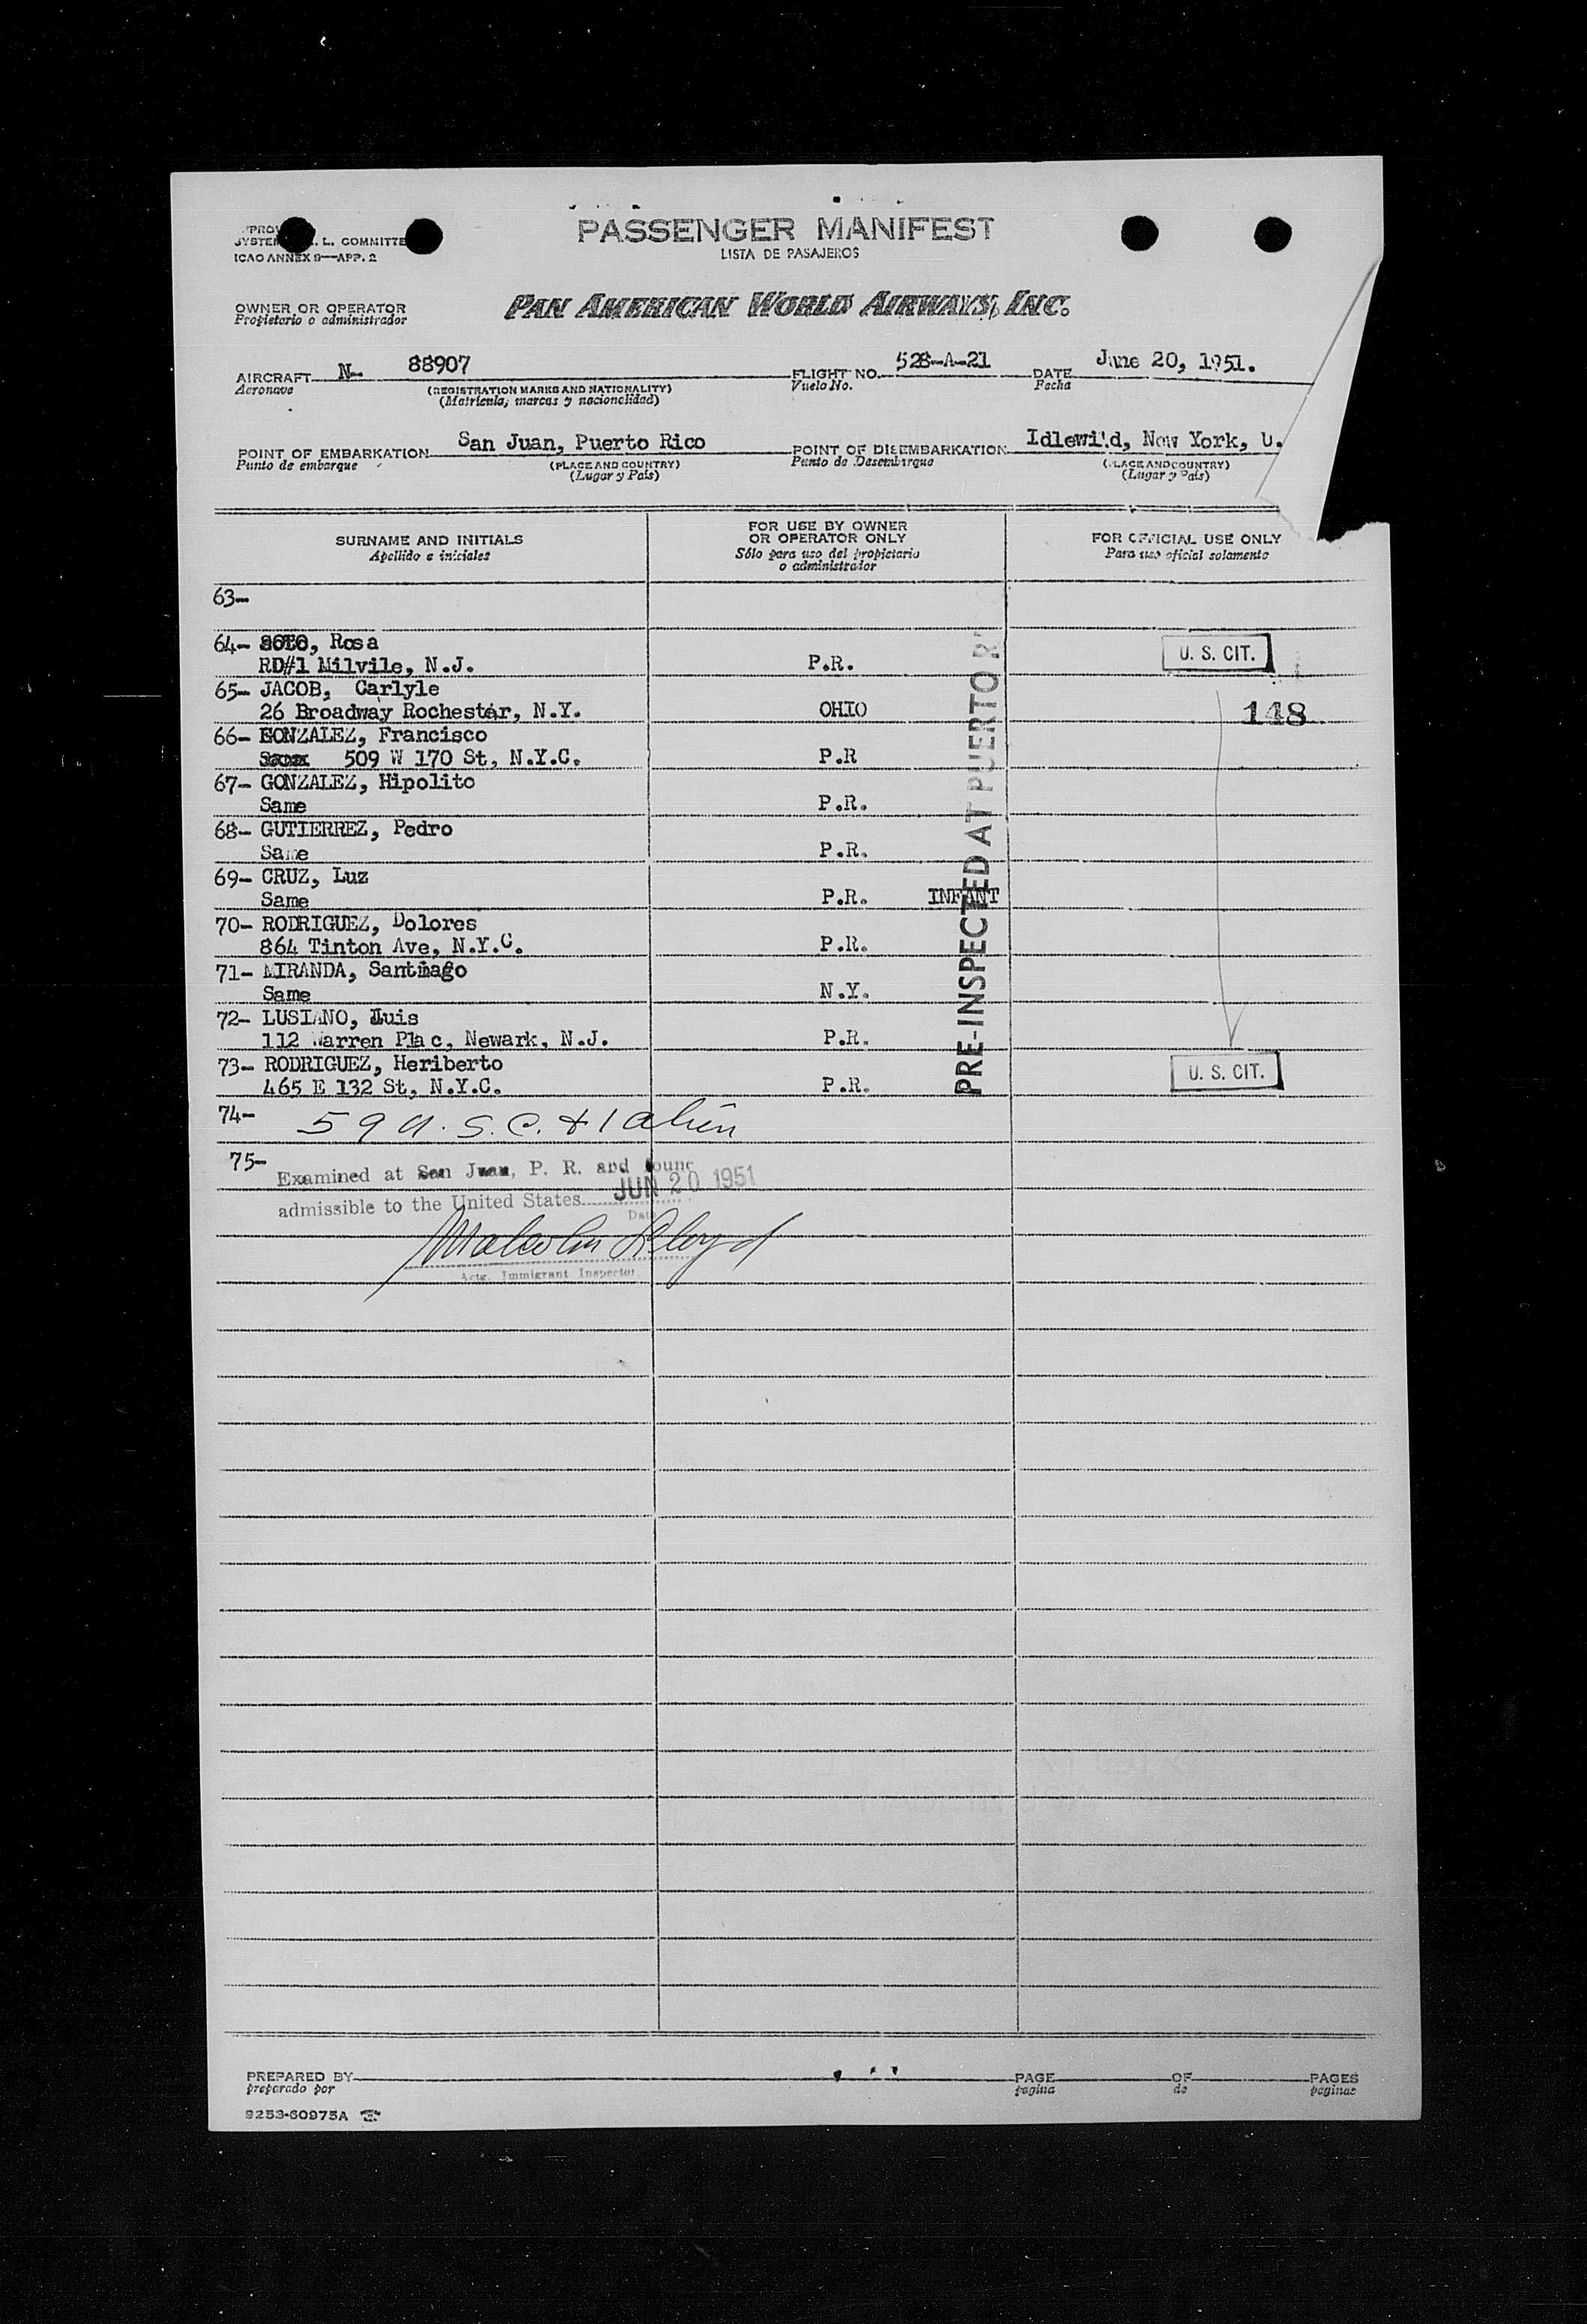 PASSENGER MANIFEST
LISTA DE PASAJEROS
L. COMMITTE
ICAO ANNEX 9—APP. 2
OWNER OR OPERATOR
Propietario o administrador
PAN AMERICAN WORLD AIRWAYS, INC.
AIRCRAFT N- 88907 FLIGHT NO. 528-A-21 DATE June 20, 1951.
Aeronave (REGISTRATION MARKS AND NATIONALITY) Vuelo No. Fecha
(Matricula, marcas y nacionalidad)
POINT OF EMBARKATION San Juan, Puerto Rico POINT OF DISEMBARKATION Idlewild, New York, U.
Punto de embarque (PLACE AND COUNTRY) Punto de Desembarque (PLACE AND COUNTRY)
(Lugar y País) (Lugar y País)
SURNAME AND INITIALS FOR USE BY OWNER OR OPERATOR ONLY FOR OFFICIAL USE ONLY
Apellido e iniciales Sólo para uso del propietario o administrador Para uso oficial solamente
63-
64- SOTO, Rosa
RD#1 Milvile, N.J. P.R. U. S. CIT.
65- JACOB, Carlyle
26 Broadway Rochester, N.Y. OHIO 148
66- GONZALEZ, Francisco
509 W 170 St, N.Y.C. P.R
67- GONZALEZ, Hipolito
Same P.R.
68- GUTIERREZ, Pedro
Same P.R.
69- CRUZ, Luz
Same P.R. INFANT
70- RODRIGUEZ, Dolores
864 Tinton Ave, N.Y.C. P.R.
71- MIRANDA, Santiago
Same N.Y.
72- LUSIANO, Luis
112 Warren Plac, Newark, N.J. P.R.
73- RODRIGUEZ, Heriberto
465 E 132 St, N.Y.C. P.R. U. S. CIT.
PRE-INSPECTED AT PUERTO R
74- 59 U.S.C. & 1 alien
75-
Examined at San Juan, P. R. and found
admissible to the United States JUN 20 1951
Date
Malcolm Lloyd
Actg. Immigrant Inspector
PREPARED BY PAGE OF PAGES
preparado por pagina de paginas
9253-60975A